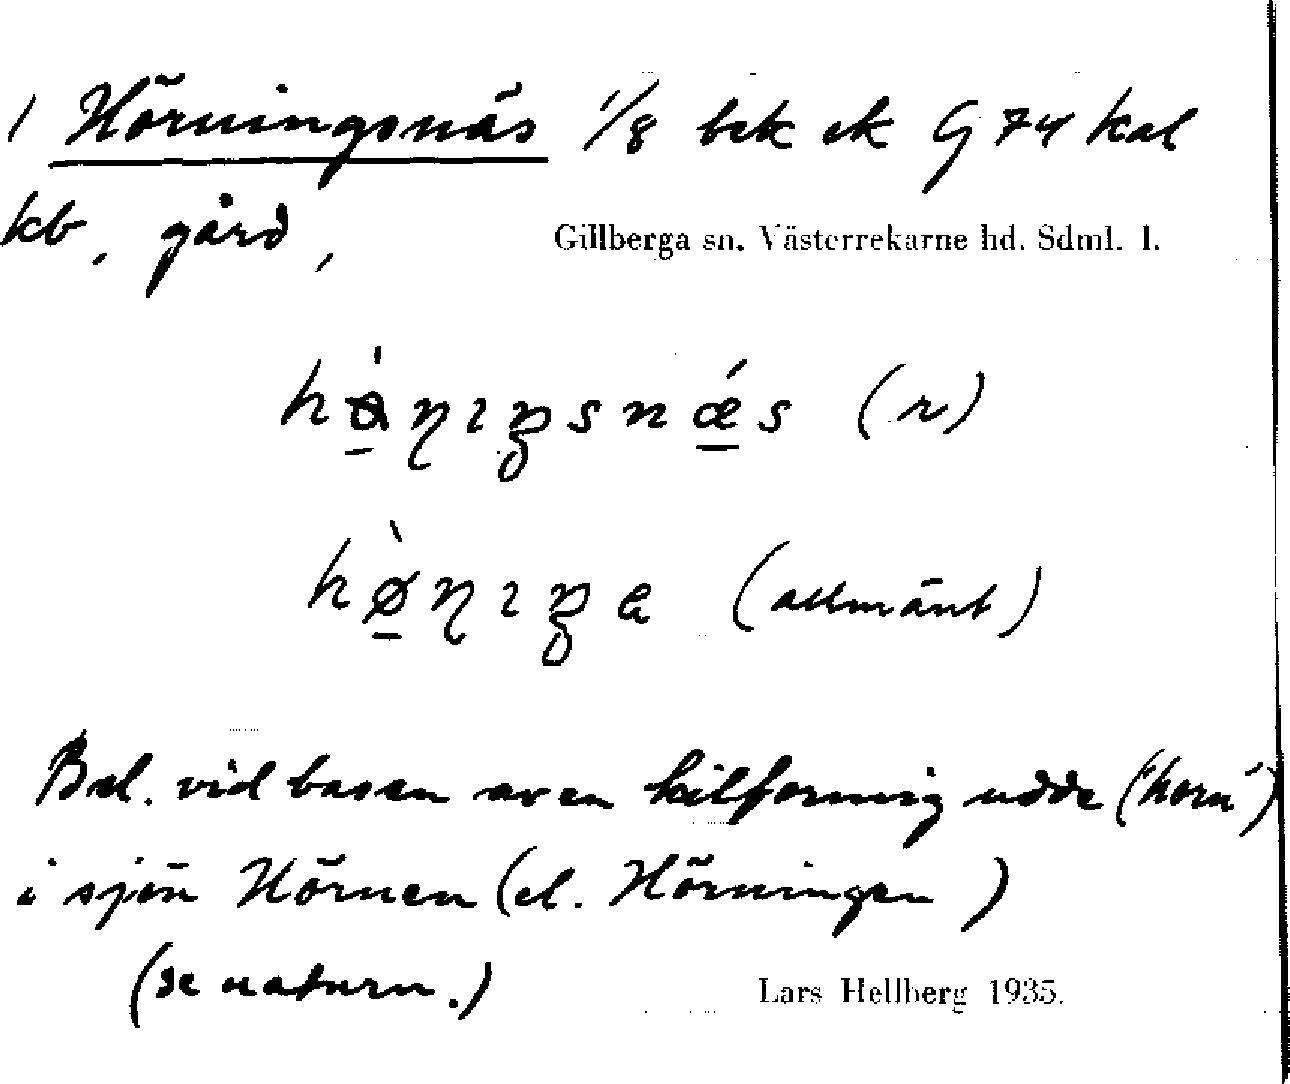 1 Hörningsnäs 1/8 bek ek G 74 kal
kb, gård,
Gillberga sn. Västerrekarne hd. Sdml. l.
(r)
(allmänt)
Bel. vid basen av en kilformig udde ('horn')
i sjön Hörnen (el. Hörningen)
(se naturn.)
Lars Hellberg 1935.